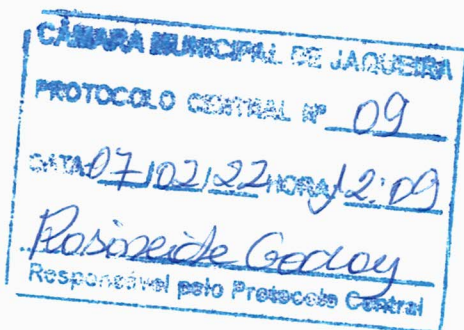 CÂMARA MUNICIPAL DE JAQUEIRA
PROTOCOLO CENTRAL Nº 09
DATA 07/02/22 HORA 12:09
Rosineide Godoy
Responsável pelo Protocolo Central